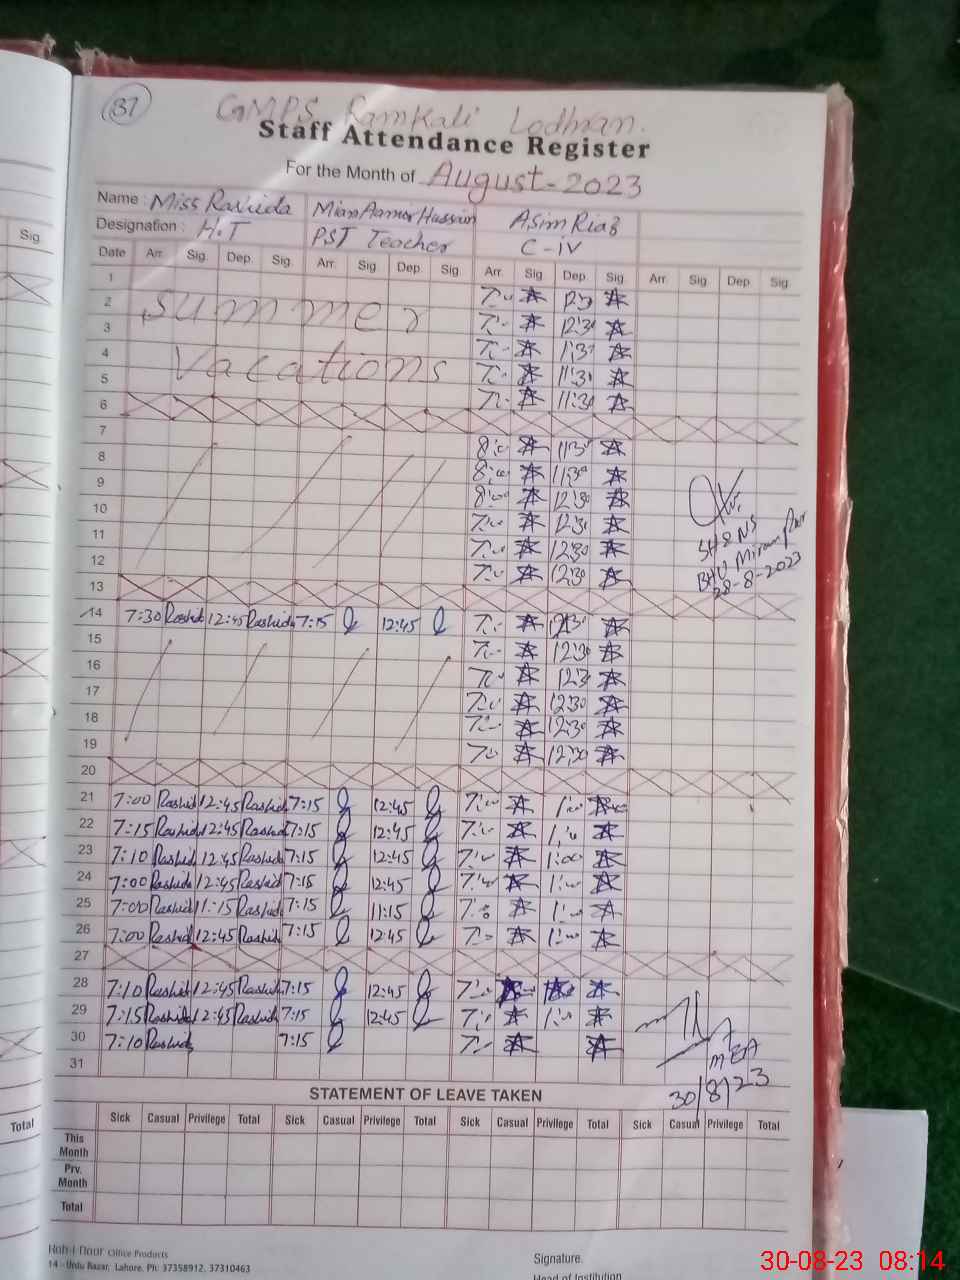 37
GMPS Ramkali Lodhran.
Staff Attendance Register
For the Month of August-2023
Name : Miss Rashida Mian Aamir Hussain Asim Riaz
Designation : H.T PST Teacher C-iv
Sig.
Date Arr. Sig. Dep. Sig. Arr. Sig. Dep. Sig. Arr. Sig. Dep. Sig. Arr. Sig. Dep. Sig.
1
2 Summer 12:30
3 12:30
4 Vacations 11:30
5 11:30
6 11:30
7
8 8:00 11:30
9 8:00 11:30
10 8:00 12:30
11 7:00 12:30
SH&NS
12 7:00 12:30
BHU
28-8-2023
13 7:00 12:30
14 7:30 Rashid 12:45 Rashid 7:15 12:45 12:30
15 12:30
16 12:30
17 7:00 12:30
18 7:00 12:30
19 12:30
20
21 7:00 Rashid 12:45 Rashid 7:15 12:45 7:00 1:00
22 7:15 Rashid 12:45 Rashid 7:15 12:45 7:00 1:00
23 7:10 Rashid 12:45 Rashid 7:15 12:45 7:00 1:00
24 7:00 Rashid 12:45 Rashid 7:15 12:45 7:00 1:00
25 7:00 Rashid 11:15 Rashid 7:15 11:15 7:00 1:00
26 7:00 Rashid 12:45 Rashid 7:15 12:45 1:00
27
28 7:10 Rashid 12:45 Rashid 7:15 12:45
29 7:15 Rashid 12:45 Rashid 7:15 12:45 1:00
30 7:10 Rashid 7:15
MEA
31
30/8/23
STATEMENT OF LEAVE TAKEN
Sick Casual Privilege Total Sick Casual Privilege Total Sick Casual Privilege Total Sick Casual Privilege Total
Total
This Month
Prv. Month
Total
Office Products
14 - Urdu Bazar, Lahore, Ph: 37358912, 37310463
Signature.
Head of Institution
30-08-23 08:14